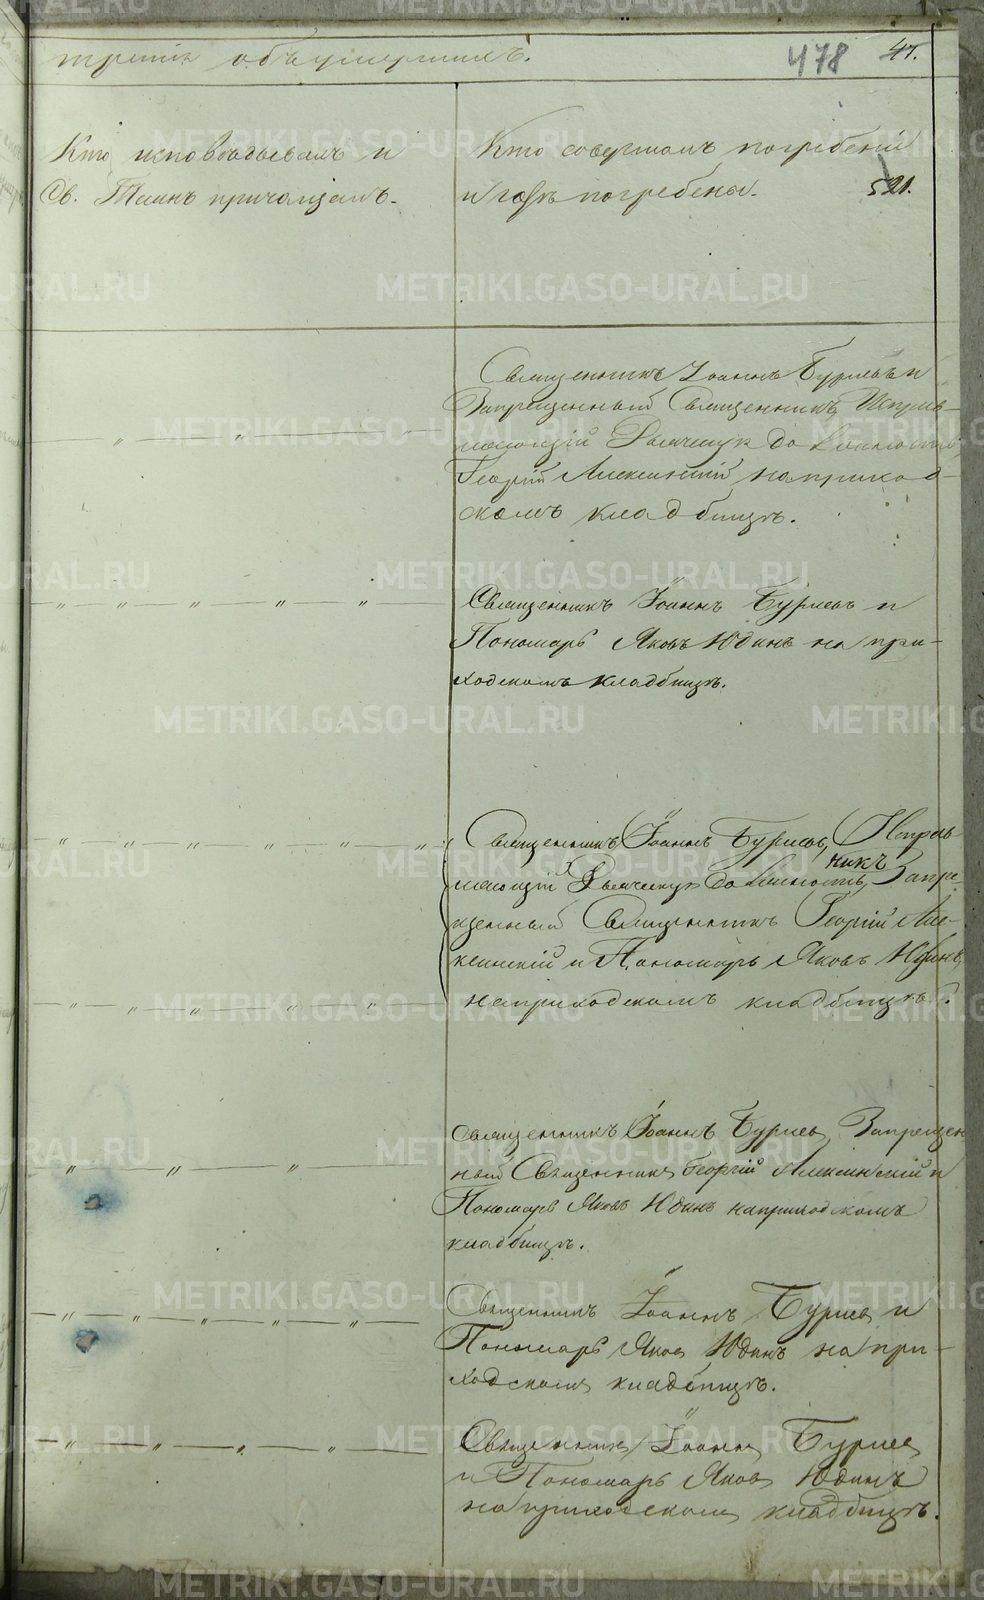 третія объумершихъ.
478
47.
Кто исповѣдывалъ и
Св. Таинъ причащалъ.
Кто совершалъ погребеніе
и гдѣ погребены.
521.
Священникъ Іоаннъ Бурцевъ и
Запрещенный Священникъ, Исправ-
ляющій Дьячешук до
Георгій Алексинскій, на приход-
скомъ кладбищѣ.
Священникъ Іоаннъ Бурцевъ и
Пономарь Яковъ Юдинъ на при-
ходскомъ кладбищѣ.
Священникъ Іоаннъ Бурцевъ, Исправ-
никъ
ляющій до Запре-
щенный Священникъ Георгій Але-
ксинскій и Пономарь Яковъ Юдинъ,
на приходскомъ кладбищѣ.
Священникъ Іоаннъ Бурцевъ, Запрещен
ный Священникъ Георгій Алексинскій и
Пономарь Яковъ Юдинъ на приходскомъ
кладбищѣ.
Священникъ Іоаннъ Бурцевъ и
Пономарь Яковъ Юдинъ на при-
ходскомъ кладбищѣ.
Священникъ Іоаннъ Бурцевъ
и Пономарь Яковъ Юдинъ
на приходскомъ кладбищѣ.
METRIKI.GASO-URAL.RU